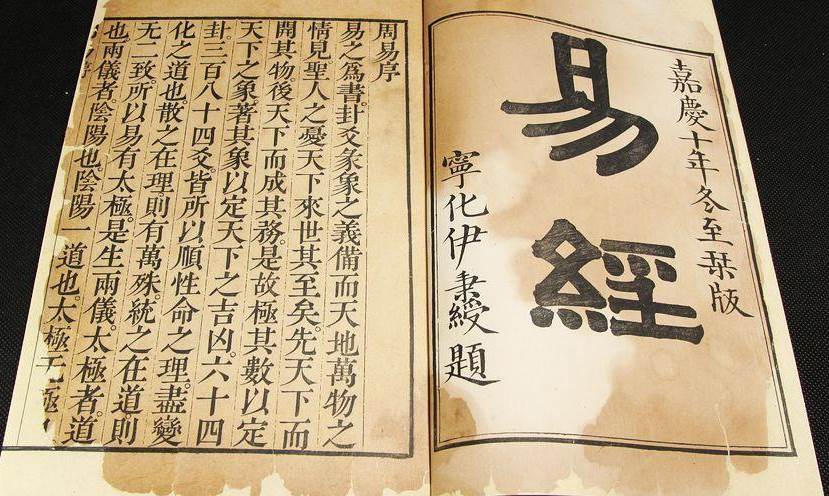 嘉慶十年冬至栞版
易經
寧化伊秉綬題
周易序
易之爲書。卦爻彖象之義備而天地萬物之
情見聖人之憂天下來世其至矣。先天下而
開其物。後天下而成其務。是故極其數以定
天下之象。著其象以定天下之吉凶。六十四
卦。三百八十四爻。皆所以順性命之理。盡變
化之道也。散之在理。則有萬殊。統之在道。則
無二致。所以易有太極。是生兩儀。太極者。道
也。兩儀者。陰陽也。陰陽一道也。太極无極
序